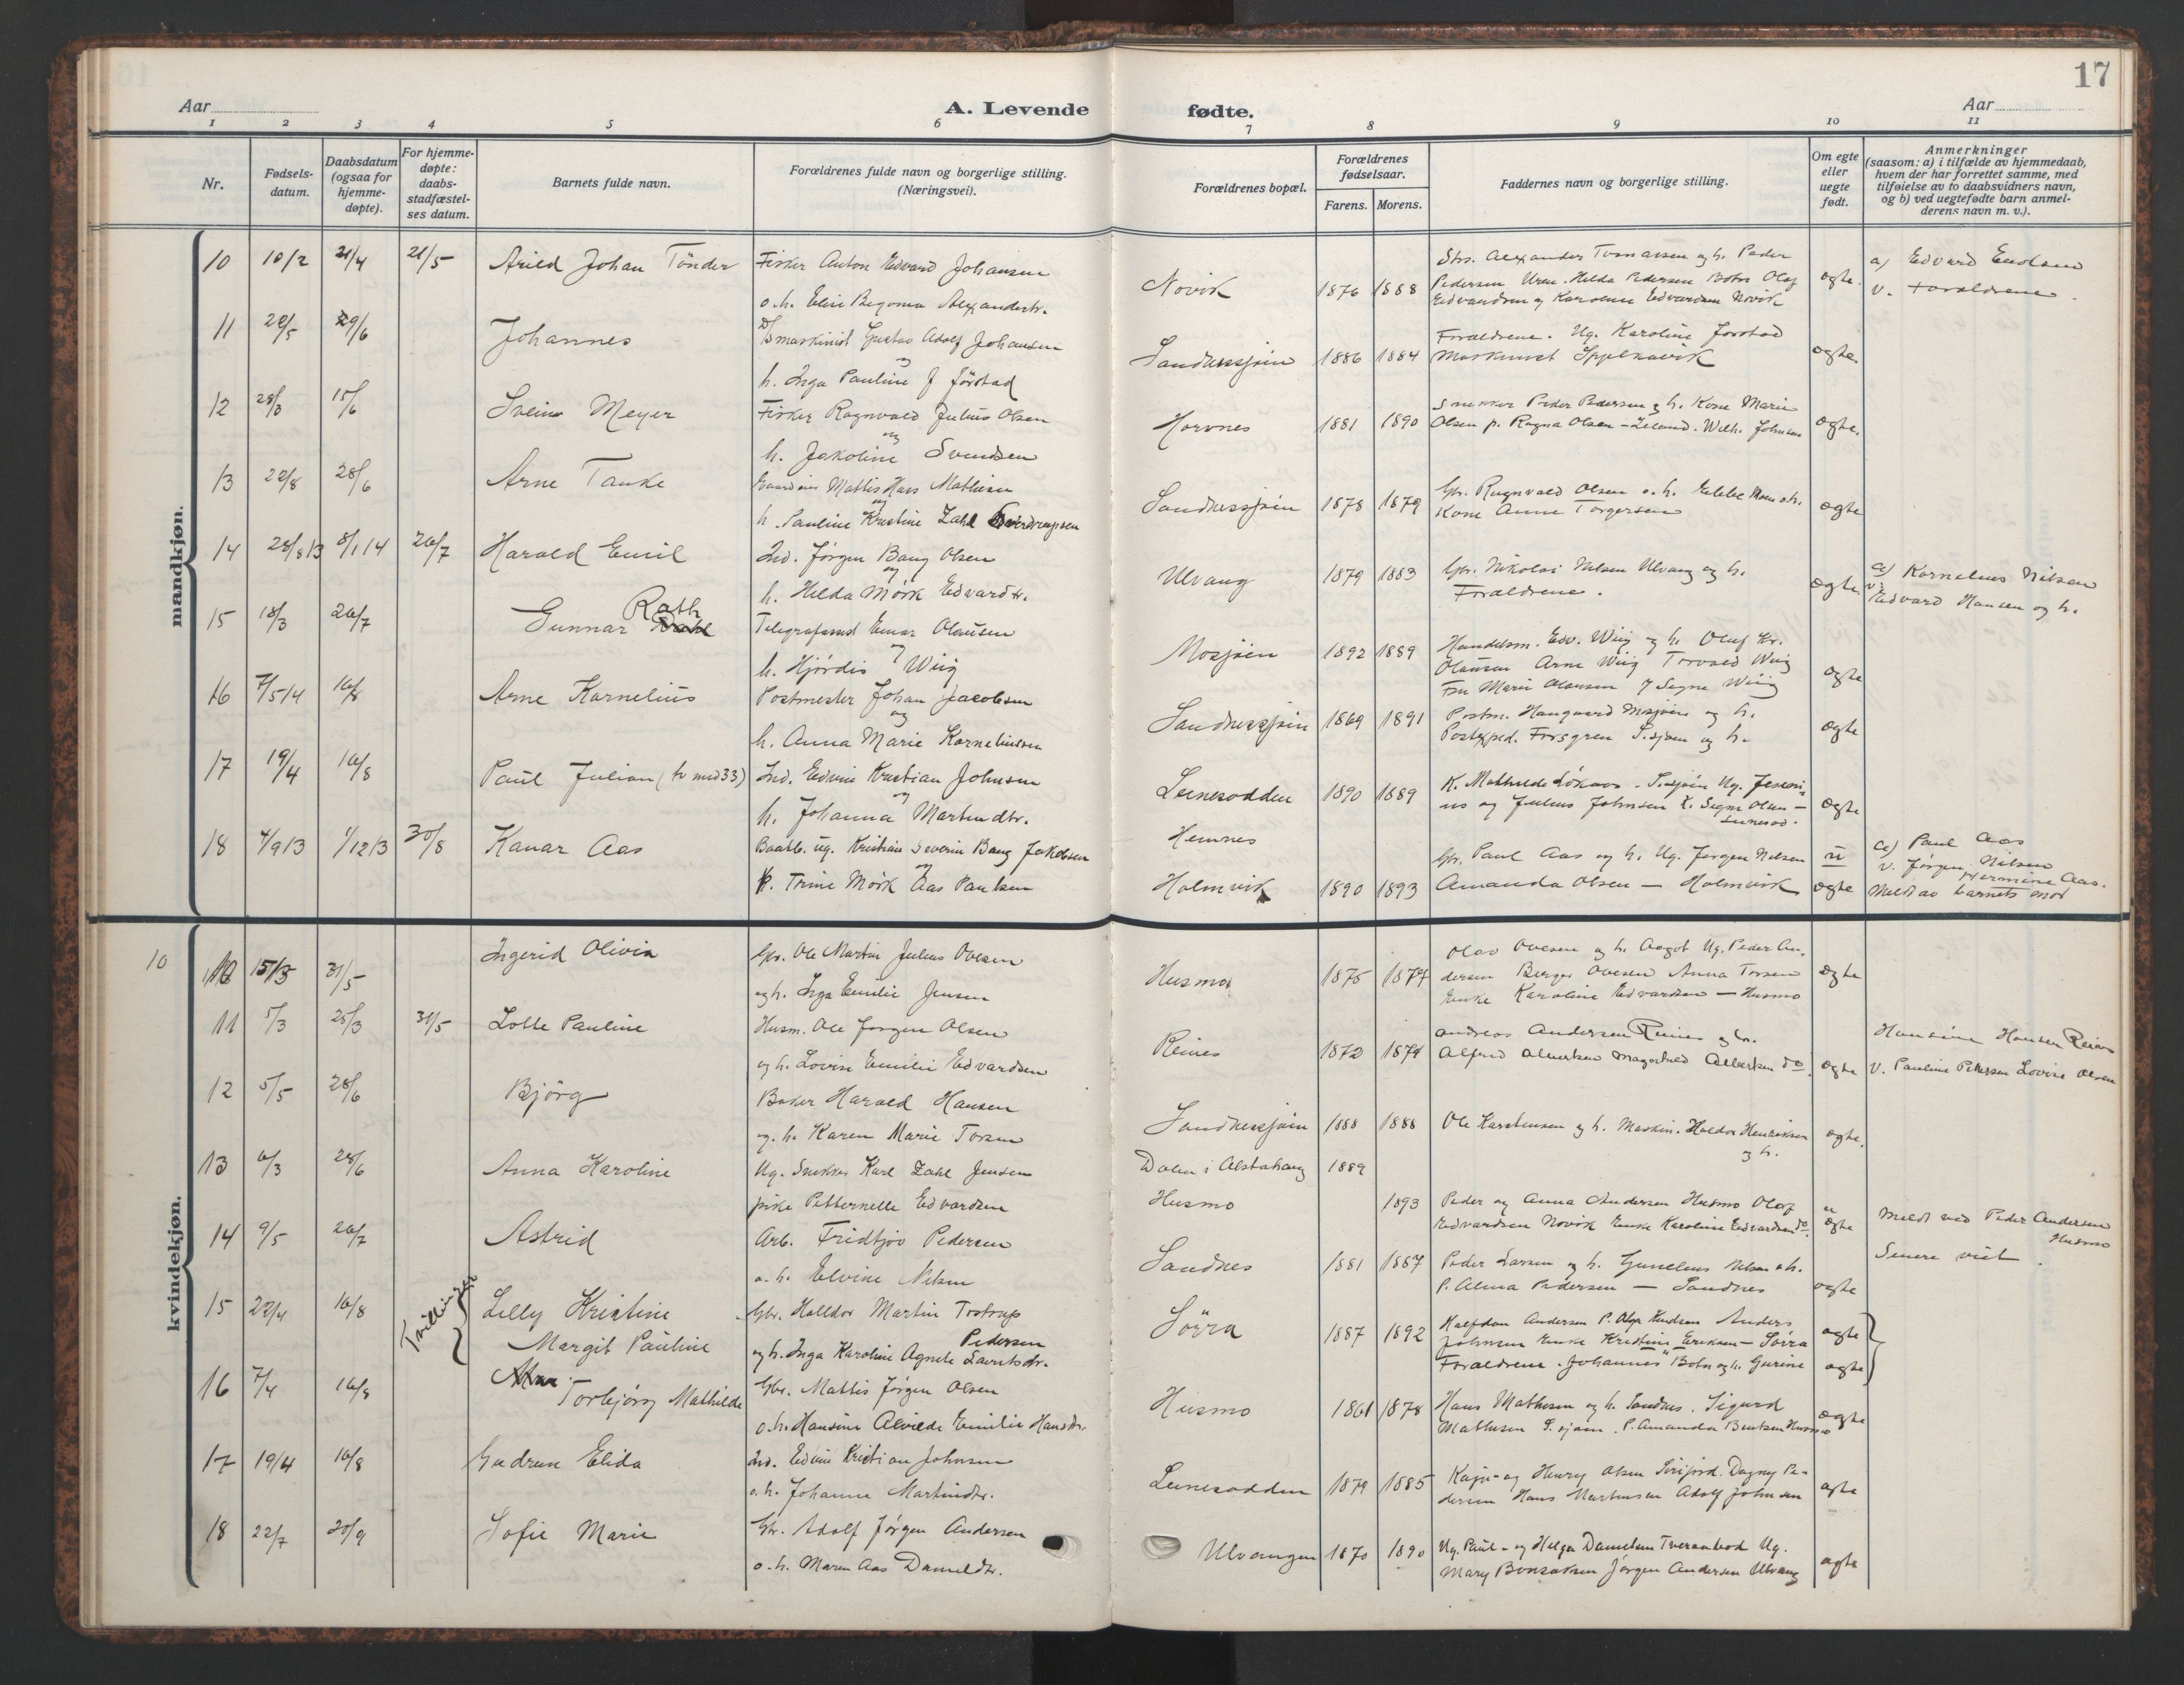 17
Aar
A. Levende fødte.
Aar
1 2 3 4 5 6 7 8 9 10 11
Nr.
Fødsels-
datum.
Daabsdatum
(ogsaa for
hjemme-
døpte).
For hjemme-
døpte:
daabs-
stadfæstel-
ses datum.
Barnets fulde navn.
Forældrenes fulde navn og borgerlige stilling.
(Næringsvei).
Forældrenes bopæl.
Forældrenes
fødselsaar.
Farens. Morens.
Faddernes navn og borgerlige stilling.
Om egte
eller
uegte
født.
Anmerkninger
(saasom: a) i tilfælde av hjemmedaab,
hvem der har forrettet samme, med
tilføielse av to daabsvidners navn,
og b) ved uegtefødte barn anmel-
derens navn m. v.).
mandkjøn.
10 10/2 21/4 21/5 Arild Johan Tönder Fisker Anton Edvard Johansen
o. h. Elise Alexandertr.
Novik 1876 1888
Pedersen Hilda Pedersen Olaf
Edvardsen og Karoline Edvardsen Novik
egte.
a) Edvard
v. Forældrene.
11 29/6 Johannes
maskinist Gustav Adolf Johansen
og
h. Inga Pauline J Jörstad
Sandnessjöen 1886 1884
Forældrene. Ug. Karoline Jorstad
egte.
12 15/6 Svein Meyer Fisker Ragnvald Julius Olsen
og
h. Jakoline Svendsen
Horvnes 1881 1890
Snekker Peder Pedersen og h. Kone Marie
Olsen p. Ragna Olsen Wilh. Johnsen
egte.
13 22/8 28/6 Arne Tanke
Mattis Hans Mathisen
og
h. Pauline Kristine Zahl
Sandnessjöen 1878 1879
Gbr. Ragnvald Olsen o. h.
Kone Anne Torgersen
egte
14 28/8 13 8/1 14 26/7 Harald Emil Ind. Jørgen Bang Olsen
og
h. Hilda Mörk Edvardtr.
Ulvang 1879 1883
Gbr. Nikolai Nilsen Ulvang og h.
Forældrene.
egte
a) Kornelius Nilsen
v. Edvard Hansen og h.
15 18/3 26/7 Gunnar Rath
Telegrafasst Einar Olausen
og
h. Hjördis Wiig
Mosjöen 1892 1889
Handelsm. Edv. Wiig og h. Oluf Kr.
Olausen Arne Wiig Torvald Wiig
Fru Marie Olausen Signe Wiig
egte
16 7/5 14 16/8 Arne Kornelius Postmester Johan Jacobsen
og
h. Anna Marie Korneliussen
Sandnessjöen 1869 1891
Postm. Haugaard Mosjöen og h.
Postexped. Forsgren S.sjöen og h.
egte
17 19/4 16/8 Paul Julian (tv med 33) Ind. Edvin Kristian Johnsen
og
h. Johanna Martindtr.
Leinesodden 1890 1889
egte
18 4/9 13 1/12 13 30/8 Kanar Aas
Baatb. ug. Kristian Severin Bang Jakobsen
og
p. Trine Mörk Aas Paulsen
Hemnes
Holmvik 1890 1893
Gbr. Paul Aas og h. Ug. Jørgen Nilsen
Amanda Olsen — Holmvik
u
egte
a) Paul Aas
v. Jørgen Nilsen
Hermine Aas.
Meldt av barnets mor
kvindekjøn.
10 10 15/3 31/5 Ingerid Olivia Gbr. Ole Martin Julius Ovesen
og h. Inga Emilie Jensen
Husmo 1875 1877
Olav Ovesen og h. Aagot Ug. Peder An-
dersen Birger Ovesen Anna Torsen
Enke Karoline Edvardsen — Husmo
egte
11 5/3 25/3 31/5 Lotte Pauline Husm. Ole Jørgen Olsen
og h. Lovise Emilie Edvardsen
Reines 1872 1874
Andreas Andersen Reines og h.
Alfred Albertsen Albertsen do.
egte
Hansine Hansen Reines
v. Pauline Pettersen Lovise Olsen
12 5/5 28/6 Björg Baker Harald Hansen
og. h. Karen Marie Torsen
Sandnessjöen 1888 1888
Ole Karstensen og h. Maskin. Haldor Henriksen
og h.
egte.
13 6/3 28/6 Anna Karoline Ug. Snekker Karl Zahl Jensen
pike Petternelle Edvardsen
Dalen i Alstahaug 1889
Husmo 1893
Peder og Anna Andersen Husmo Olaf
Edvardsen Novik Enke Karoline Edvardsen do.
u
egte
Meldt ved Peder Andersen
Husmo
Senere viet.
14 9/5 26/7 Astrid Arb. Fridtjov Pedersen
o. h. Elvine Nilsen
Sandnes 1881 1887
Peder Larsen og h. Gunelius Nilsen o. h.
P. Alma Pedersen — Sandnes
egte
15 22/4 16/8 Tvillinger Lilly Kristine
Margit Pauline
Gbr. Halldor Martin Trstrup
Pedersen
og h. Inga Karoline Agnete Lauritsdr.
Sörra 1887 1892
Halfdan Andersen P. Olga Knudsen Anders
Johnsen Enke Kristine Eriksen — Sörra
Forældrene. Johannes Botn og h. Gurine
egte
egte
16 7/4 16/8 Torbjörg Mathilde Gbr. Mattis Jørgen Olsen
o. h. Hansine Alvilde Emilie Hansdtr.
Husmo 1861 1878
Hans Mathisen og h. Sandnes. Sigurd
Mathisen S.sjöen. P. Amanda Bentsen Husmo
egte
17 19/4 16/8 Gudrun Elida Ind. Edvin Kristian Johnsen
o. h. Johanna Martindtr.
Leinesodden 1879 1885
Kaja- og Henry Olsen Dagny Pe-
dersen Hans Martinsen Adolf Johnsen
egte
18 22/7 20/9 Sofie Marie Gbr. Adolf Jørgen Andersen
o. h. Maren Aas Danieldtr.
Ulvangen 1870 1890
Ug. Paul- og Helga Danielsen Ug.
Mary Jörgen Andersen Ulvang
egte